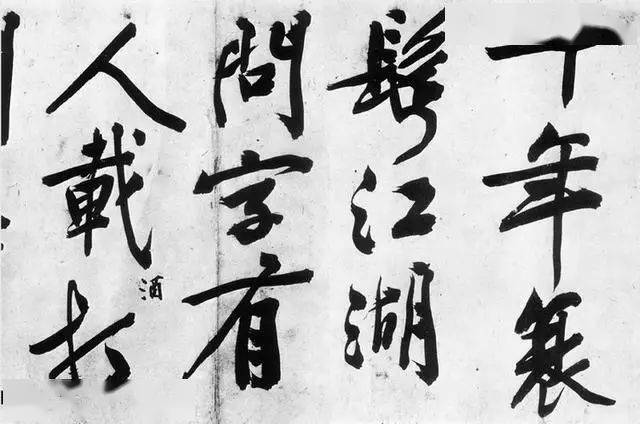 十年衰
鬢江湖
問字有
人載酒